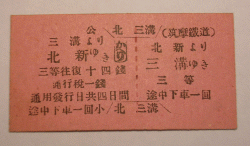 公 北 三溝
三溝より
北新ゆき
三等往復十四錢
通行稅一錢
通用發行日共四日間
途中下車一回
小 北 三溝
(筑摩鐵道)
北新より
三溝ゆき
三等
途中下車一回